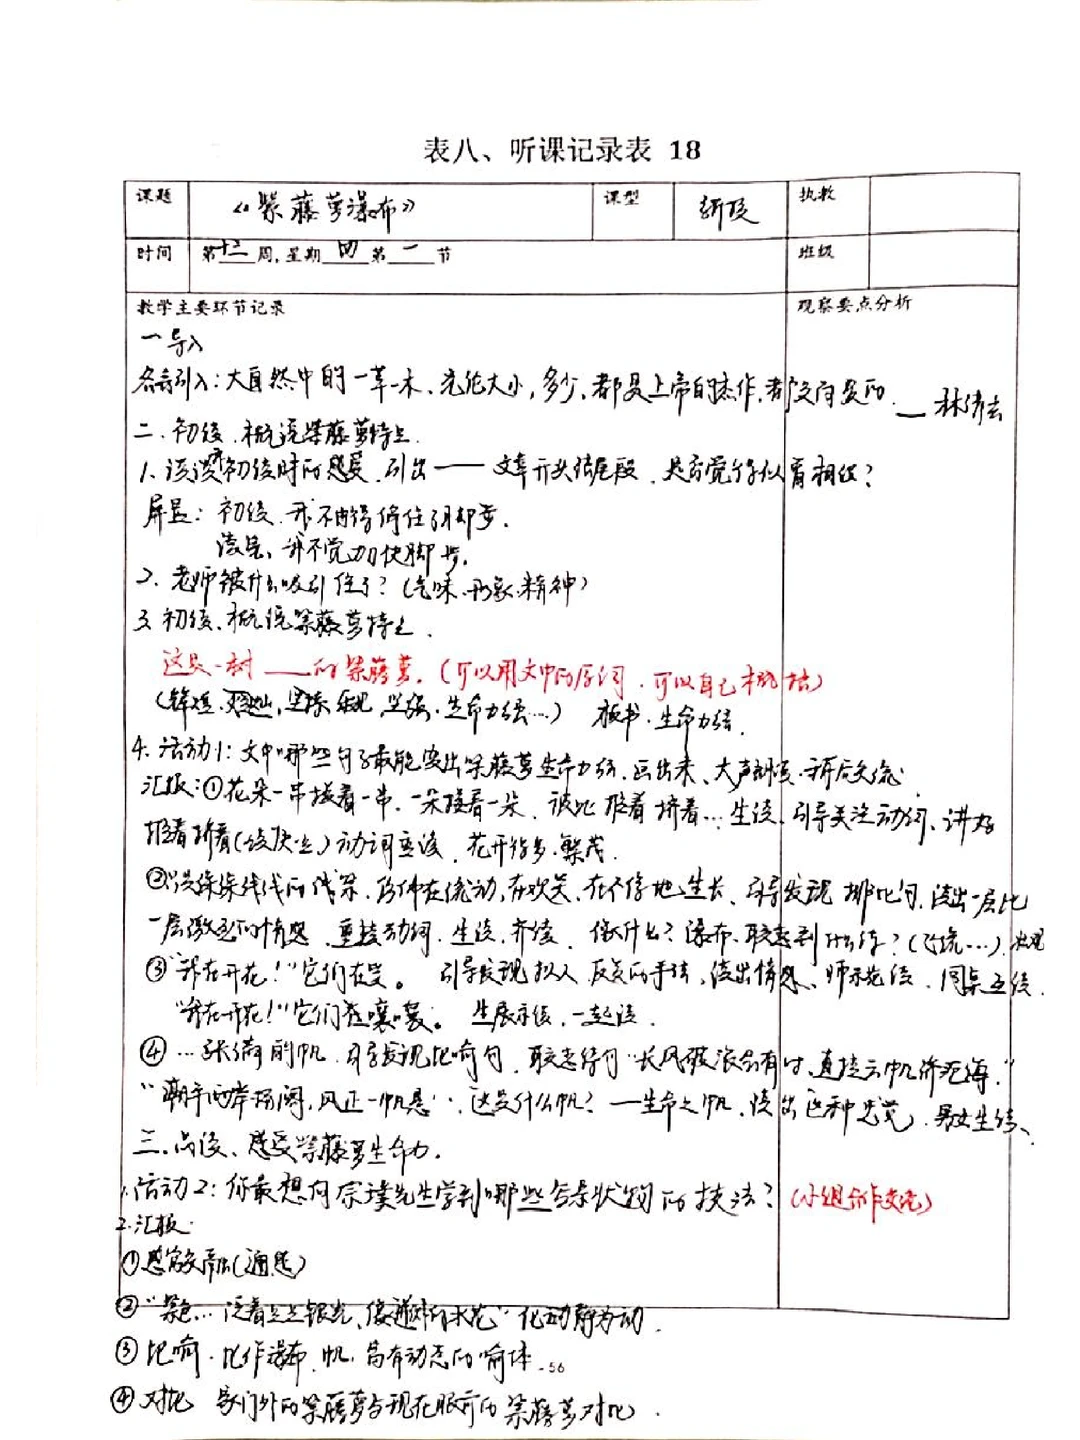 表八、听课记录表 18
课题 《紫藤萝瀑布》 课型 新授 执教
时间 第十二周，星期四第一节 班级
教学主要环节记录 观察要点分析
一导入
名言引入：大自然中的一草一木、无论大小，多少，都是上帝的杰作，都 的. —— 林清玄
二.初读.概说紫藤萝特点.
1.谈谈初读时的感受.引出——文章开头结尾段.是否觉得似有相似？
屏显：初读.我不由得停住了脚步.
读完，我不觉加快脚步.
2.老师被什么吸引住了？（气味.形象.精神）
3.初读、概说紫藤萝特点.
这是一树____的紫藤萝.（可以用文中的原词.可以自己概括）
（辉煌.灿烂， 坚强.生命力强…） 板书.生命力强.
4.活动1：文中哪些句子最能突出紫藤萝生命力强.画出来、大声朗读.
汇报：①花朵一串接着一串.一朵接着一朵.彼此推着挤着…生读.引导关注动词、讲好
推着挤着 动词重读.花开得多.繁茂.
② 仿佛在流动，在欢笑.在不停地生长、引导发现排比句.读出一层比
一层激烈的情感.重读动词.生读.齐读. 像什么？瀑布.联想到什么诗？（飞流…）.出现
③"我在开花！"它们在笑。 引导发现拟人.反复的手法、读出情感、师示范读.同桌互读.
"我在开花！"它们在嚷嚷。 生展示读.一起读.
④…张满的帆.引导发现比喻句.联想诗句"长风破浪会有时、直挂云帆济沧海."
"潮平两岸阔，风正一帆悬".这是什么帆？—生命之帆.读出这种感觉.男女生读、
三.品读、感受紫藤萝生命力.
1.活动2：你最想向宗璞先生学到哪些写景状物的技法？（小组合作交流）
2.汇报.
① （通感）
②" …泛着点点银光、像迸溅的水花"化静为动.
③比喻.比作瀑布.帆.富有动态的喻体.
56
④对比 家门外的紫藤萝与现在眼前的紫藤萝对比.